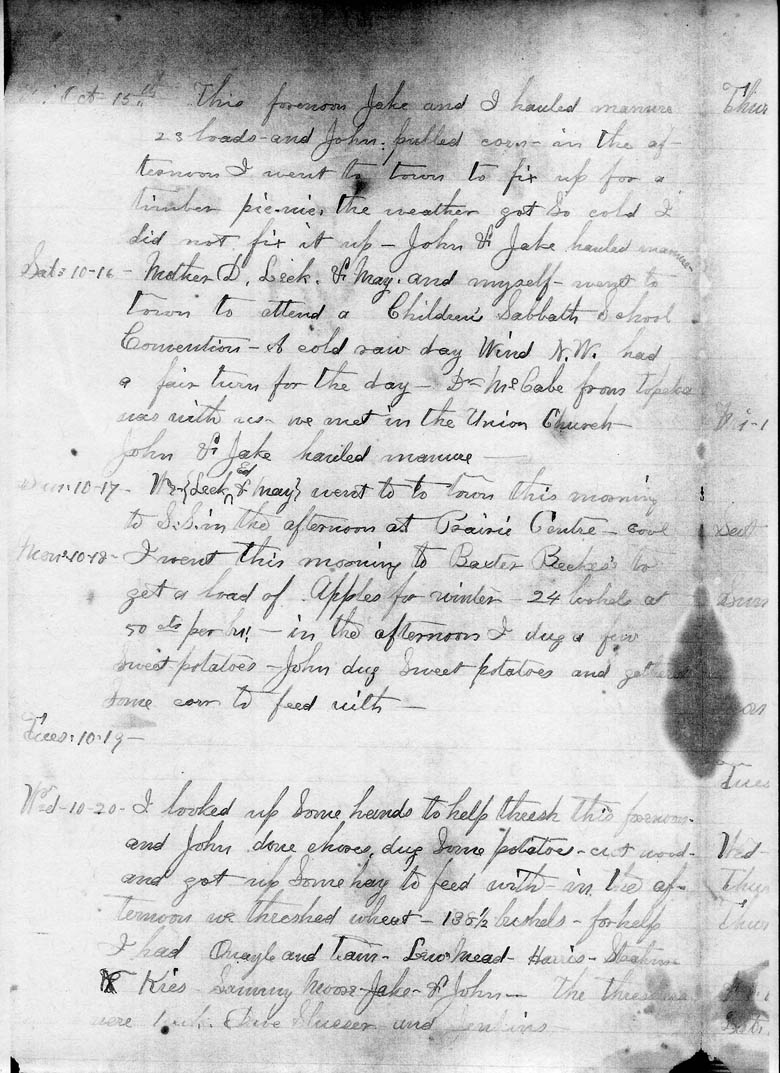 Oct 15th This forenoon Jake and I hauled manure
23 loads - and John pulled corn - in the af-
ternoon I went to town to fix up for a
timber picnic, the weather got so cold I
did not fix it up - John & Jake hauled manure -
Sat: 10-16 - Mother D, Leck. & May. and myself - went to
town to attend a Children's Sabbath School
Convention - A cold raw day Wind N.W. had
a fair turn for the day - Dr McCabe from Topeka
was with us - we met in the Union Church -
John & Jake hauled manure -
Sun: 10-17 - We {Leck Ed & May} went to to town this morning
to S.S. in the afternoon at Prairie Centre - cool
Mon: 10-18 - I went this morning to Baxter to
get a load of Apples for winter - 24 bushels at
50 cts per bu! - in the afternoon I dug a few
sweet potatoes - John dug sweet potatoes and gathered
some corn to feed with -
Tues: 10-19 -
Wed - 10-20 - I looked up some hands to help thresh this forenoon -
and John done chores, dug some potatoes - cut wood -
and got up some hay to feed with - in the af-
ternoon we threshed wheat - 138 1/2 bushels - for help
I had Quayle and team - Mead - Harris -
& Kies - Sammy Moore - Jake - & John - The
were and Jenkins
Thur
Sat
Sun
Tues
Wed -
Thur
Thur